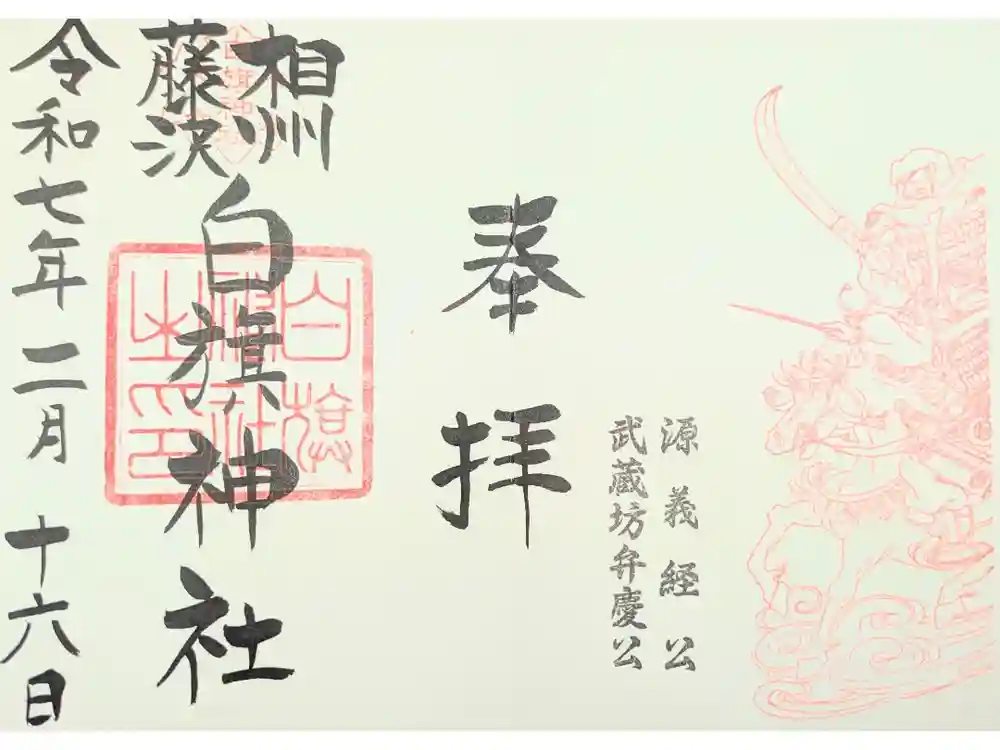 源義経公
武蔵坊弁慶公
奉拝
相州
藤沢
白旗神社
白旗
神社
之印
令和七年二月十六日